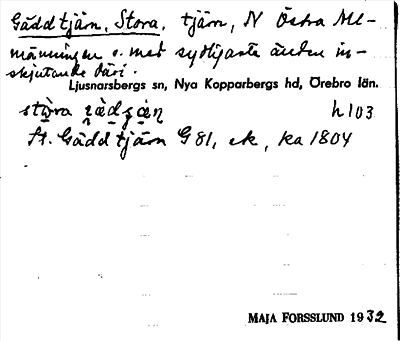 Gäddtjärn, Stora, tjärn, N Östra All-
männingen o. med sydligaste änden in-
skjutande däri.
Ljusnarsbergs sn, Nya Kopparbergs hd, Örebro län.
h 103
St. Gäddtjärn G 81, ek, ka 1804
MAJA FORSSLUND 1932